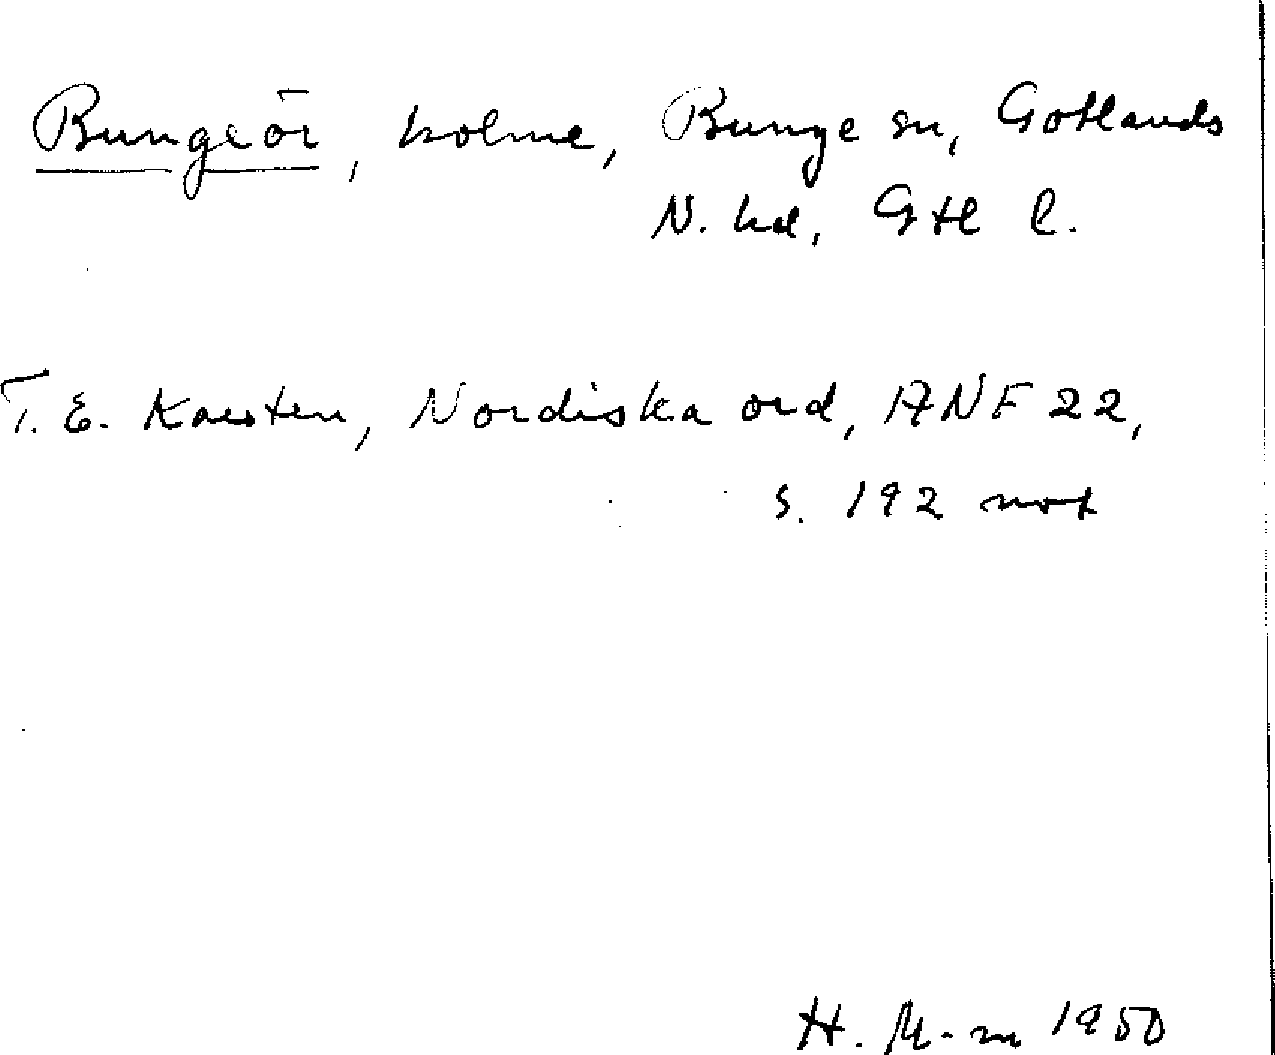 Bungeör, holme, Bunge sn, Gotlands
N. hd, Gtl l.
T. E. Karsten, Nordiska ord, ANF 22,
s. 192 not
H. M-m 1950